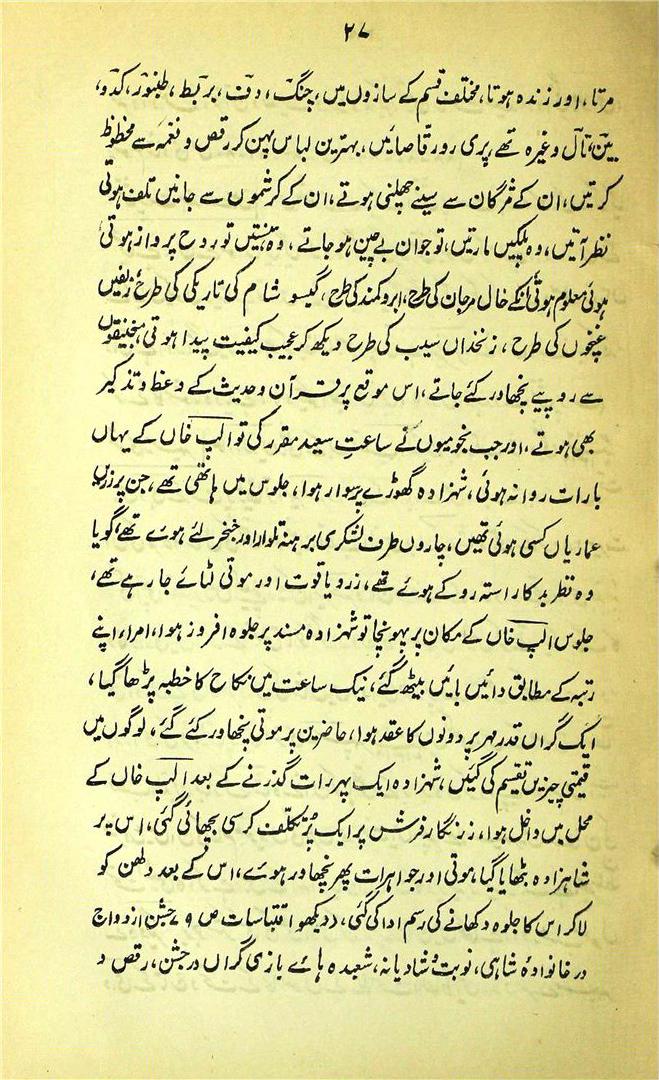 ۲۷
مرتا، اور زندہ ہوتا، مختلف قسم کے سازوں میں، چنگ، دف، بربط، طنبور، کدو،
بین، تال وغیرہ تھے، پری رو رقاصائیں، بہترین لباس پہن کر رقص و نغمہ سے محظوظ
کرتیں، ان کے مژگان سے سینے چھلنی ہوتے، ان کے کرشموں سے جانیں تلف ہوتی
نظر آتیں، وہ پلکیں مارتیں، تو جوان بے چین ہو جاتے، وہ ہنستیں تو روح پرواز ہوتی
ہوئی معلوم ہوتی، انکے خال مرجان کی طرح، ابرو کمند کی طرح، گیسو شام کی تاریکی کی طرح، زلفیں
غنچوں کی طرح، زنخداں سیب کی طرح دیکھ کر عجیب کیفیت پیدا ہوتی، منجنیقوں
سے روپیے نچھاور کئے جاتے، اس موقع پر قرآن وحدیث کے وعظ و تذکیر
بھی ہوتے، اور جب نجومیوں نے ساعتِ سعید مقرر کی تو الپ خاں کے یہاں
بارات روانہ ہوئی، شہزادہ گھوڑے پر سوار ہوا، جلوس میں ہاتھی تھے، جن پر زریں
عماریاں کسی ہوئی تھیں، چاروں طرف لشکری برہنہ تلوار اور خنجر لئے ہوے تھے، گویا
وہ نظر بد کا راستہ روکے ہوئے تھے، زر و یاقوت اور موتی لٹائے جا رہے تھے،
جلوس الپ خاں کے مکان پر پہونچا تو شہزادہ مسند پر جلوہ افروز ہوا، امراء اپنے
رتبہ کے مطابق دائیں بائیں بیٹھ گئے، نیک ساعت میں نکاح کا خطبہ پڑھا گیا،
ایک گراں قدر مہر پر دونوں کا عقد ہوا، حاضرین پر موتی نچھاور کئے گئے، لوگوں میں
قیمتی چیزیں تقسیم کی گئیں، شہزادہ ایک پہر رات گذرنے کے بعد الپ خاں کے
محل میں داخل ہوا، زرنگار فرش پر ایک پُر تکلّف کرسی بچھائی گئی، اس پر
شاہزادہ بٹھایا گیا، موتی اور جواہرات پھر نچھاور ہوے، اس کے بعد دلھن کو
لا کر اس کا جلوہ دکھانے کی رسم ادا کی گئی، (دیکھو اقتباسات ص ۷۹ جشن ازدواج
در خانوادۂ شاہی، نوبت و شادیانہ، شعبدہ ہاے بازی گراں در جشن، رقص و